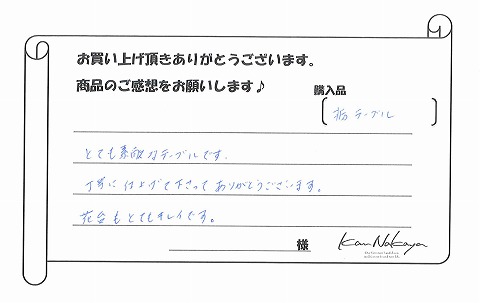 お買い上げ頂きありがとうございます。
商品のご感想をお願いします♪
購入品
栃テーブル
とても素敵なテーブルです。
丁寧に仕上げて下さってありがとうございます。
もとてもキレイです。
様
Kan Nakaya